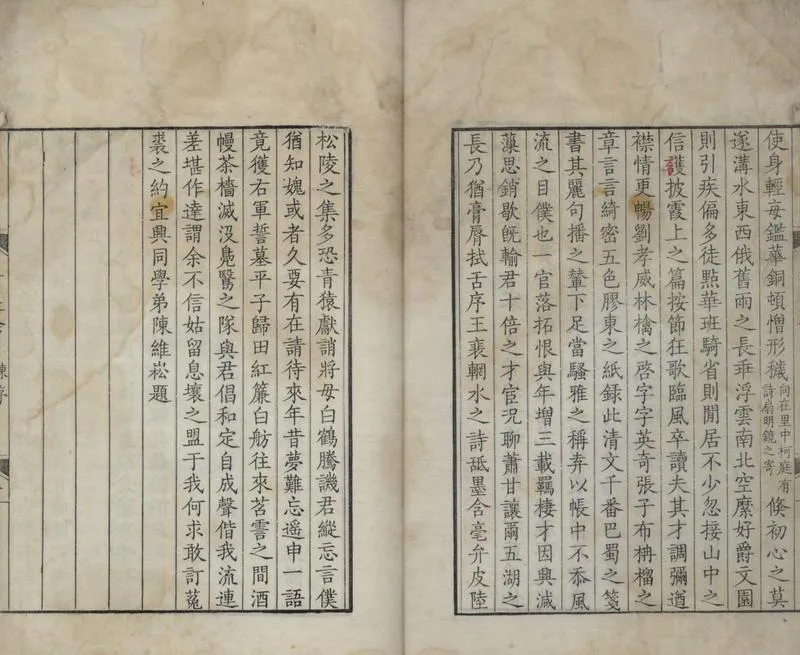 使身輕每鑑華銅頓憎形穢
向在里中柯庭有
詩扇明鏡之寄
倐初心之莫
遂溝水東西俄舊雨之長乖浮雲南北空縻好爵文園
則引疾偏多徒㸃華班騎省則閒居不少忽接山中之
信護披霞上之篇按節狂歌臨風卒讀夫其才調彌遒
襟情更暢劉孝威林檎之啓字字英奇張子布柟榴之
章言言綺密五色膠東之紙録此清文千番巴蜀之箋
書其麗句播之輦下足當騷雅之稱弆以帳中不忝風
流之目僕也一官落拓恨與年增三載羈棲才因興減
藻思銷歇旣輸君十倍之才宦况聊蕭甘讓爾五湖之
長乃猶膏脣拭舌序王裒輞水之詩舐墨含毫弁皮陸
松陵之集多恐青猿獻誚將毋白鶴騰譏君縱忘言僕
猶知媿或者久要有在請待來年昔夢難忘遥申一語
竟獲右軍誓墓平子歸田紅簾白舫往來苕霅之間酒
幔茶檣滅沒鳧鷖之隊與君倡和定自成聲偕我流連
差堪作達謂余不信姑留息壤之盟于我何求敢訂菟
裘之約宜興同學弟陳維崧題